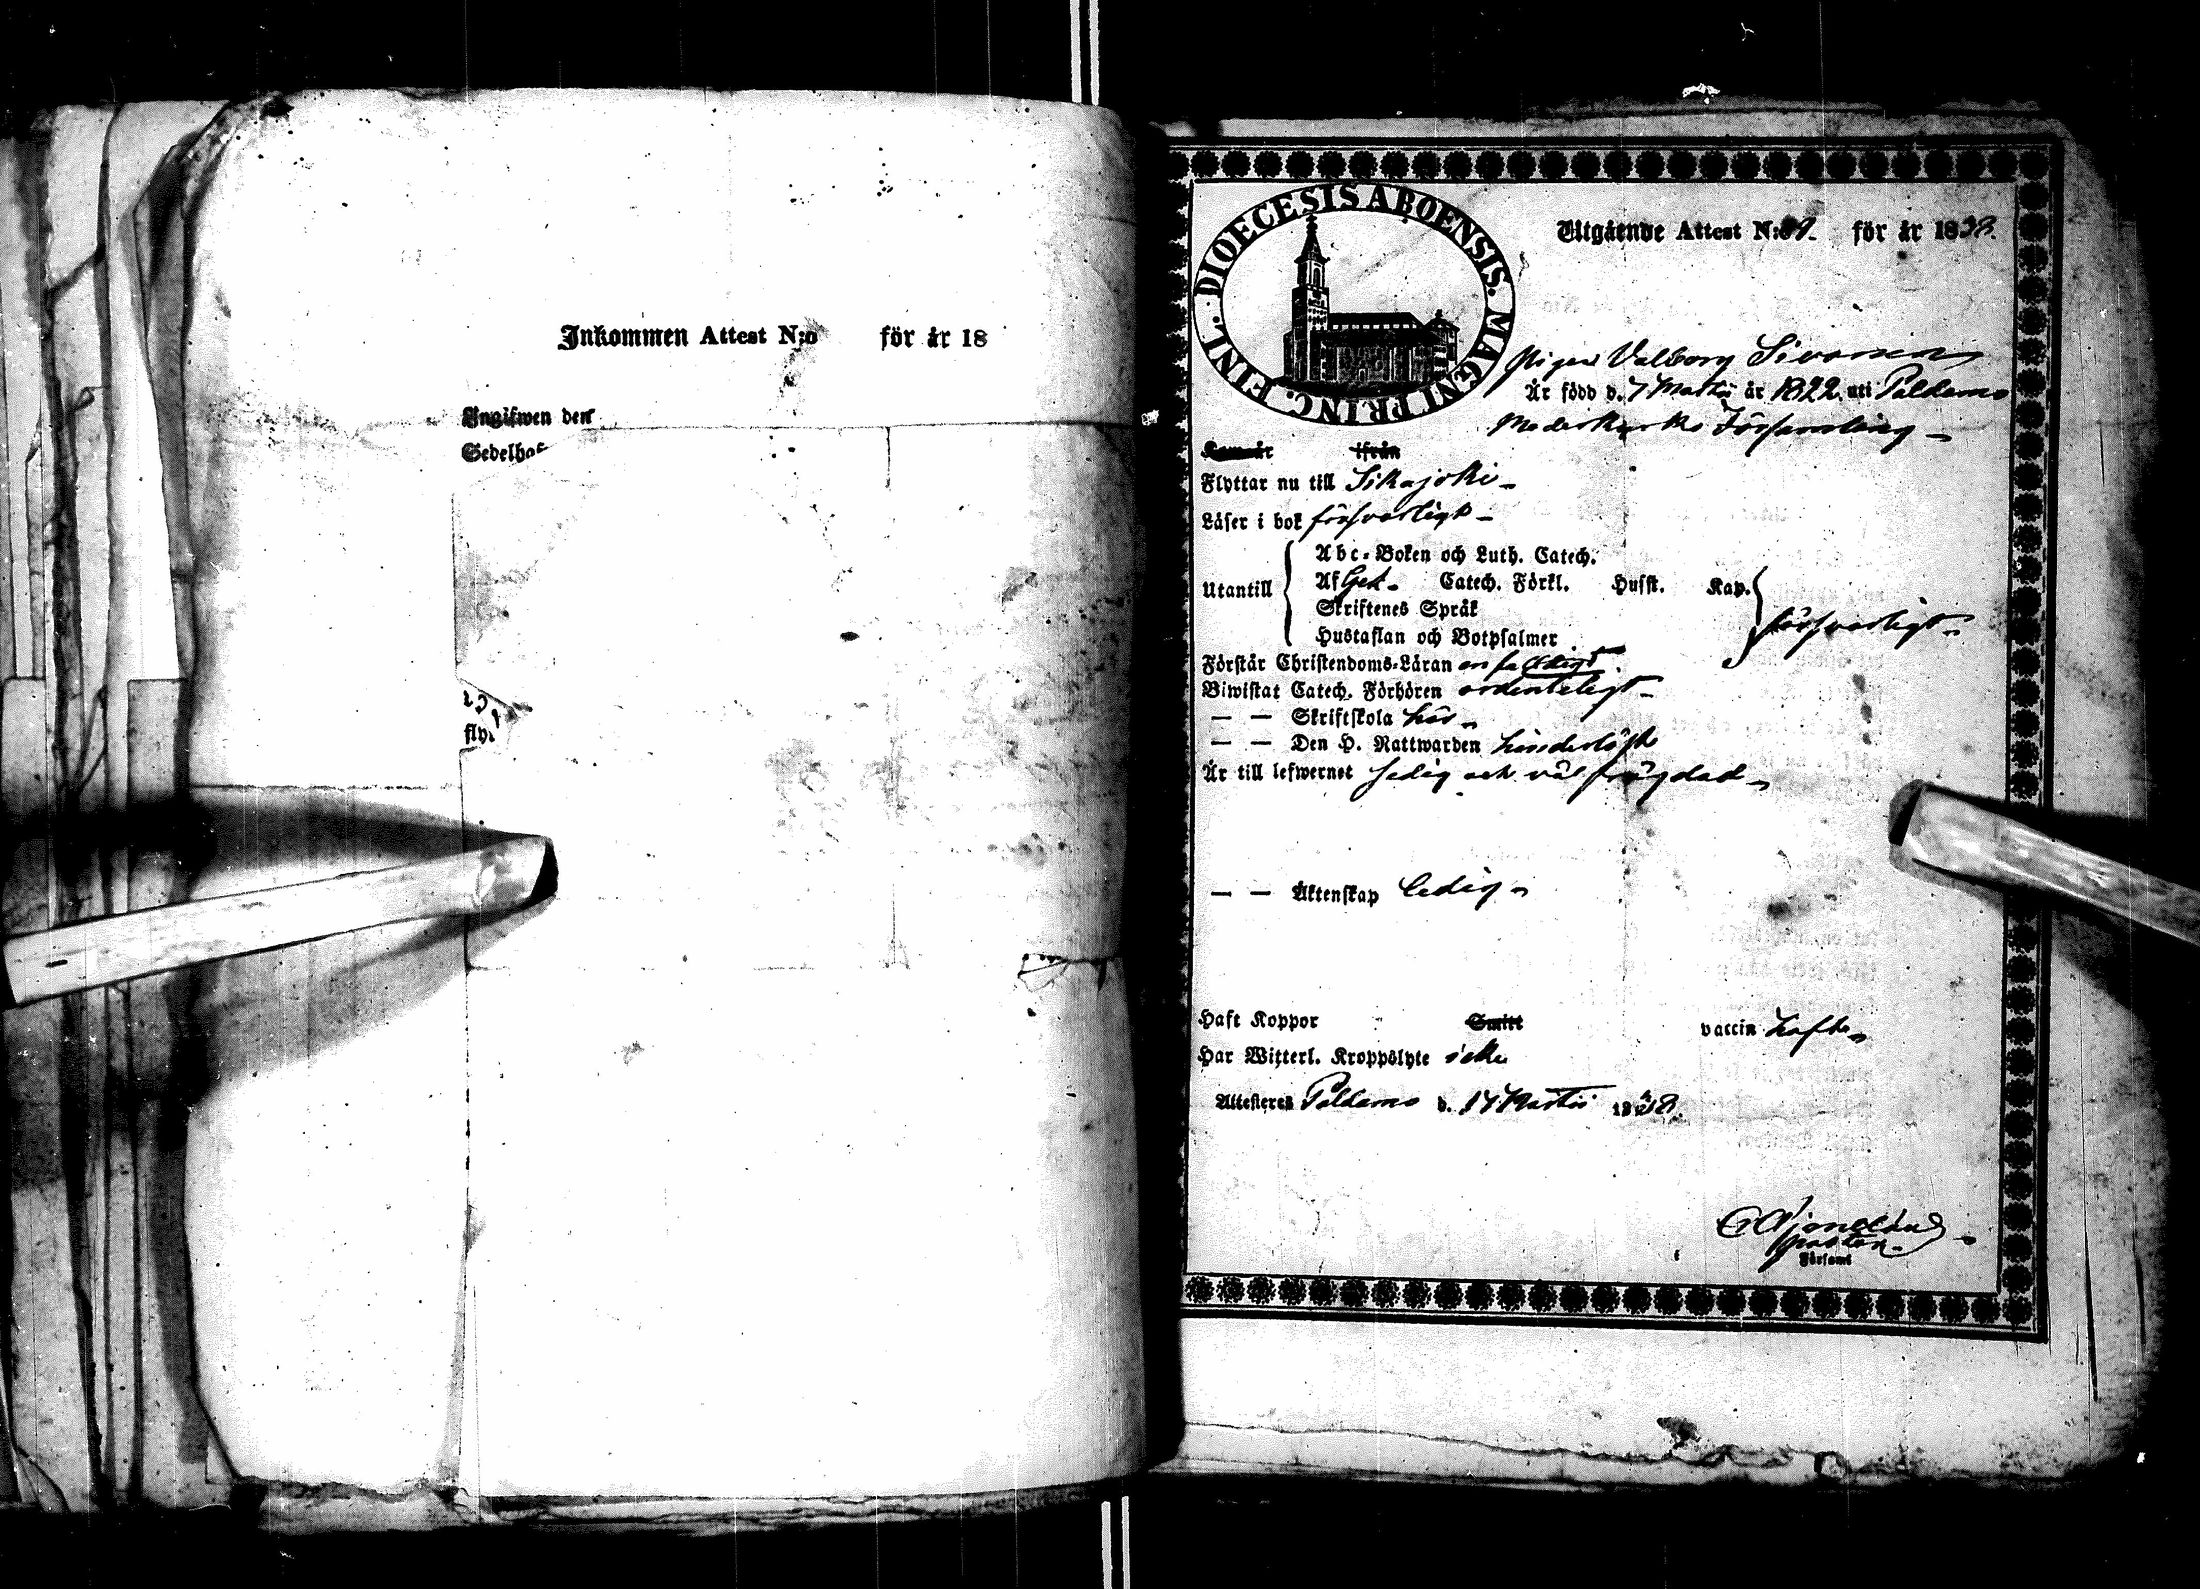 Inkommen Attest N:o för år 18
Angifwen den
Sedelhaf
fly
DIOECESIS ABOENSIS. MAGNI PRINC. FINL.
Utgående Attest N: för år 1838.
Pigan Valborg Sivonen
Är född d. 7 Martii år 1822 uti Paldamo
Moderkyrko Församling
Kom år ifrån
Flyttar nu till Sikajoki
Läser i bok försvarligt
Utantill
Abc-Boken och Luth. Catech.
Af Get. Catech. Förkl. Husst. Kap.
Skriftenes Språk
Hustaflan och Botpsalmer
försvarligt
Förstår Christendoms-Läran enfaldigt
Biwistat Catech. Förhören ordenteligt
— — Skriftskola här
— — Den H. Nattwarden hinderlöst
Är till lefwernet sedig och väl frägdad
— — Äktenskap ledig
Haft Koppor Smitt vaccin haft
Har Witterl. Kroppslyte icke
Attesteras Paldamo d. 17 Martii 1838.
Pastor
Församl